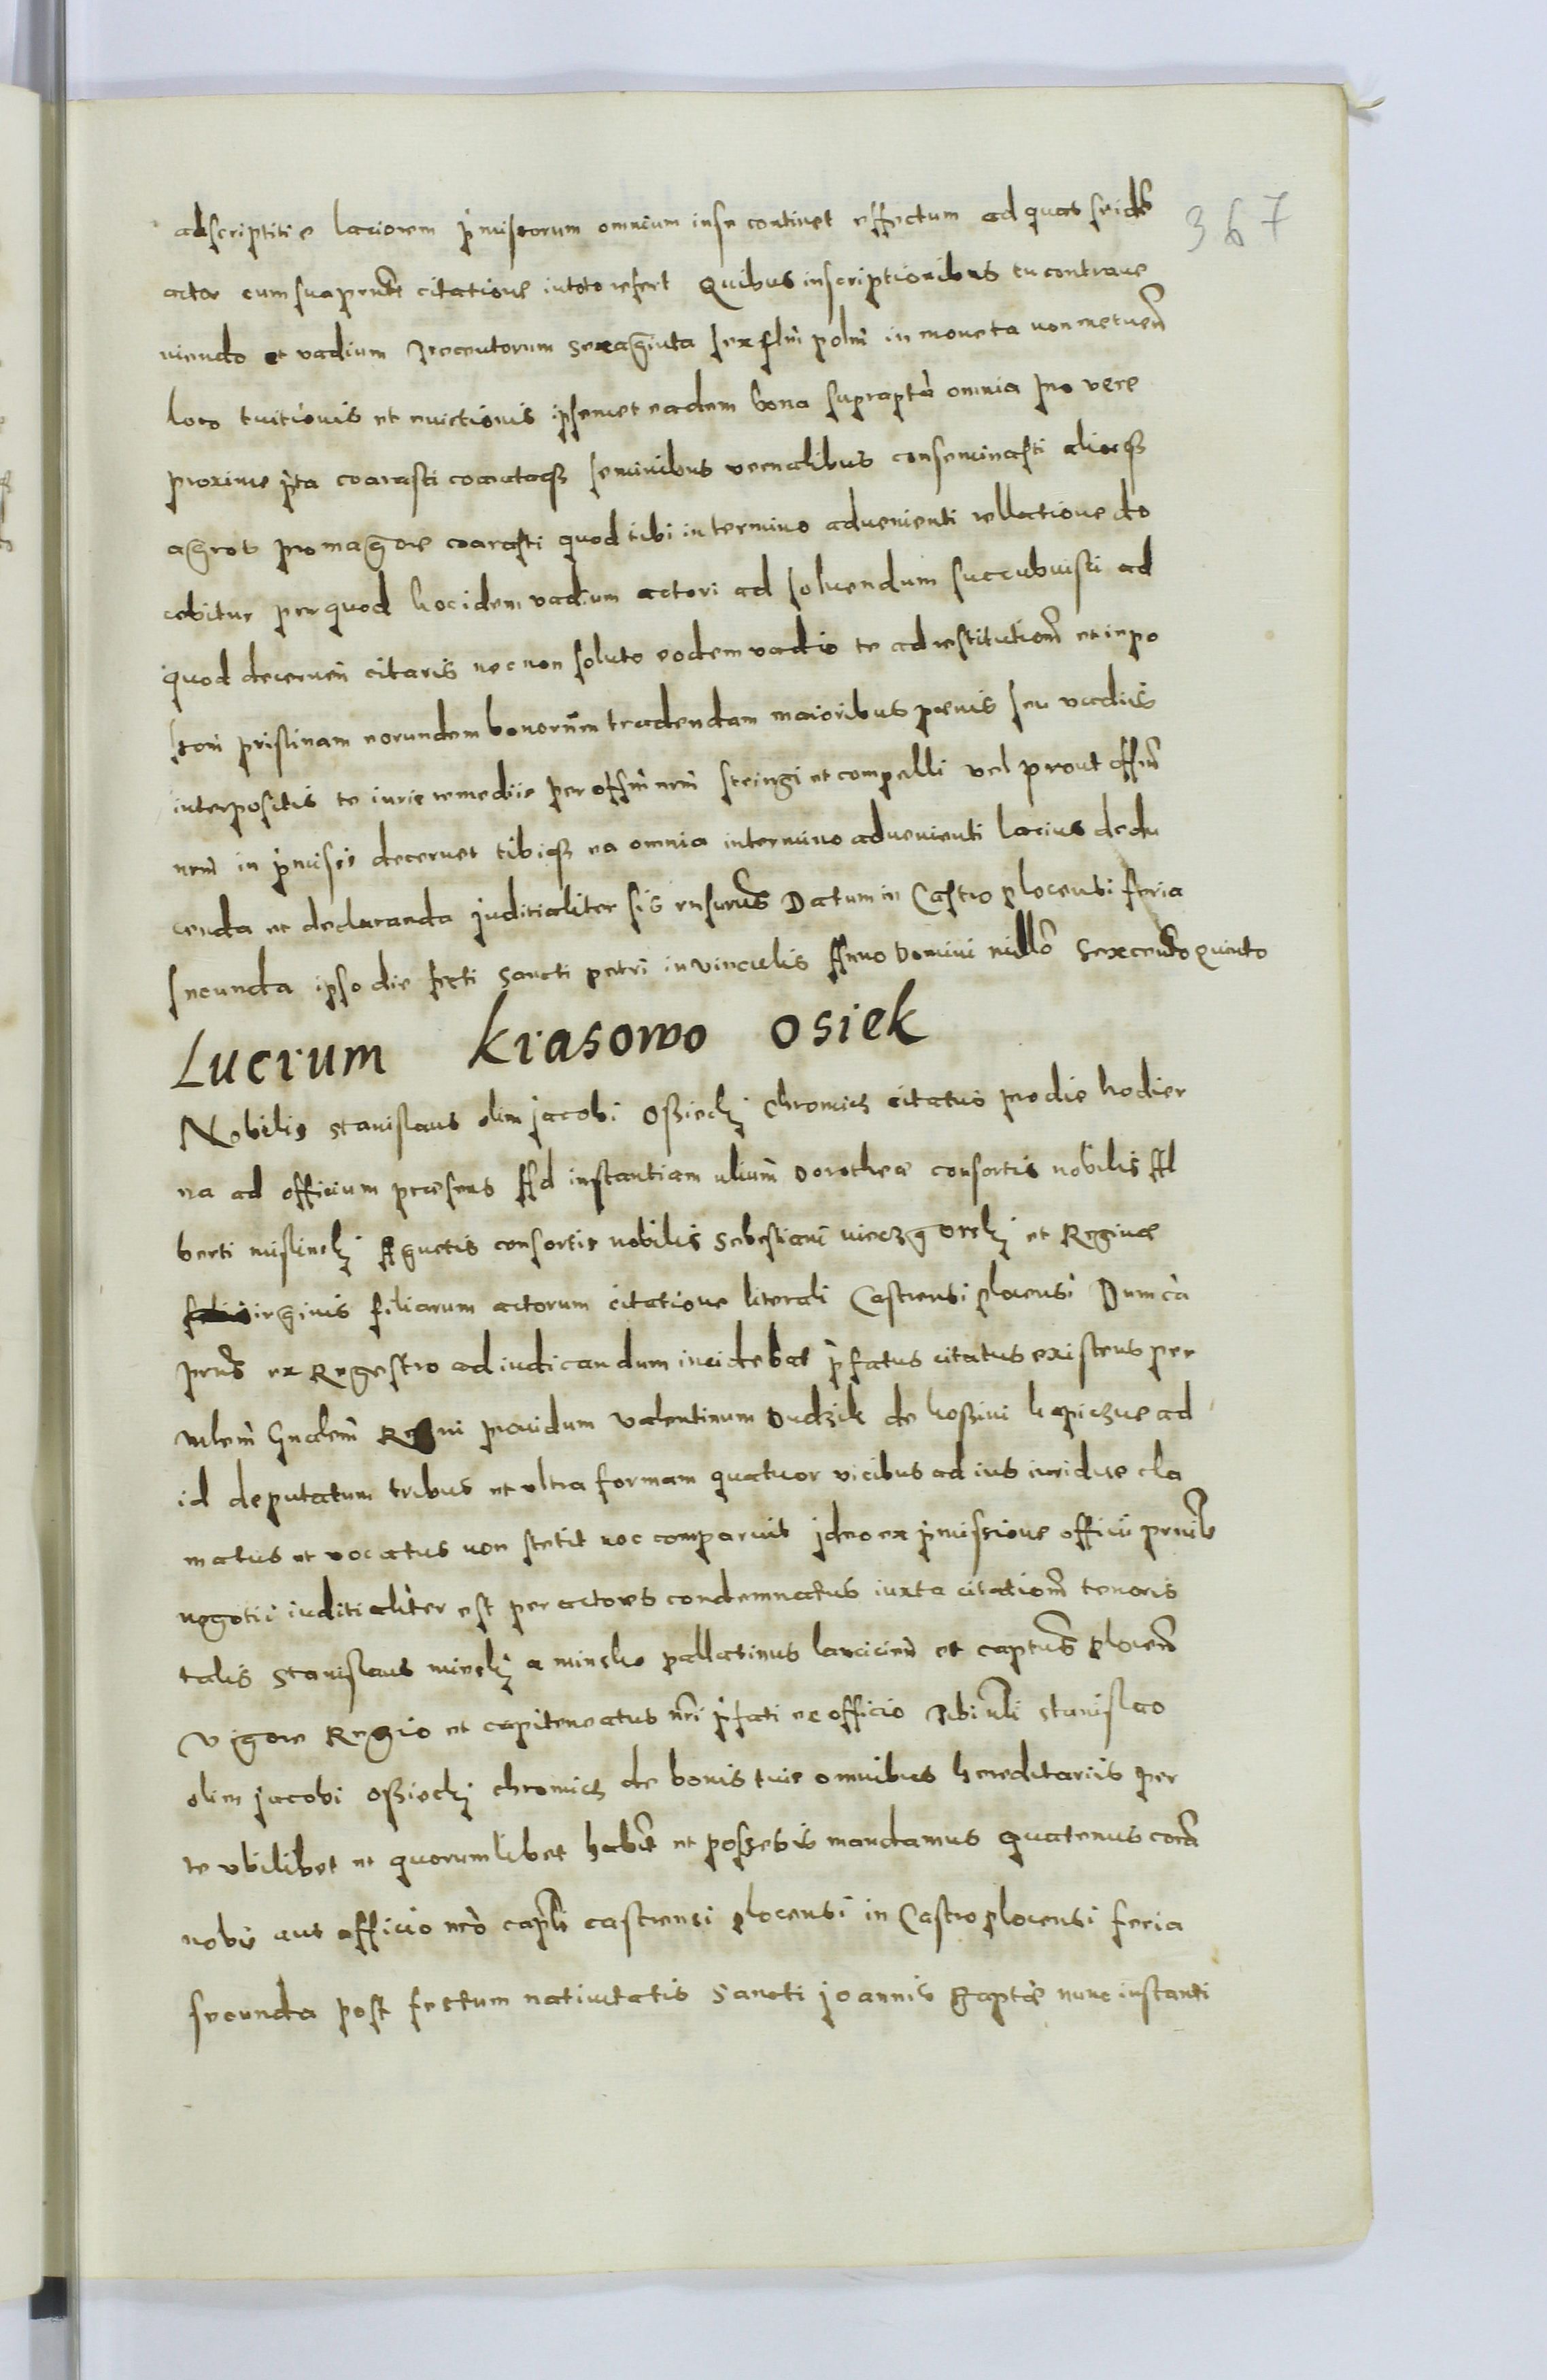 adscriptitie laciorem pmissorum omnium in se continet effectum ad quas se idem
actor cum sua pnti citatione in toto refert Quibus inscriptionibus tu contrave
niendo et vadium Trecentorum sexaginta sex flni polni in moneta non metuen
loco tuitionis et evictionis ipsemet eadem bona suprapta omnia pro vere
proxime pta coarasti coarataq seminibus vernalibus conseminasti aliosq
agros pro magore coarasti quod tibi in termino advenienti rellatione do
cebitur per quod hoc idem vadium actori ad solvendum succubuisti ad
quod decernen citaris nec non soluto eodem vadio te ad restitutionem et in po
ssioni pristinam eorundem bonorum tradendam maioribus pœnis seu vadiis
interpositis te iuris remediis per offm nrm stringi et compelli vel prout offm
nrm in pmissis decernet tibiq ea omnia in termino advenienti lacius dedu
cenda et declaranda juditialiter sis rnsurus Datum in Castro plocensi feria
secunda ipso die festi sancti petri in vinculis Anno Domini millo sexcento Quinto
Lucrum Krasowo Osiek
Nobilis stanislaus olim jacobi Ossiecki Chromich citatus pro die hodier
na ad officium præsens Ad instantiam nlium Dorotheæ consortis nobilis Al
berti mislinski Agnetis consortis nobilis Sebestiani wieczgorski et Reginæ
virginis filiarum actorum citatione literali Castrensi plocensi Dum ca
pns ex Regestro ad iudicandum incidebat pfatus citatus existens per
mlem Gnalem Regni providum Valentinum Dudzik de kossini kapiczne ad
id deputatum tribus et ultra formam quatuor vicibus ad ius iuridice cla
matus et vocatus non stetit nec comparuit jdeo ex pmissione officii pntis
negotii iuditialiter est per actores condemnatus iuxta citationem tenoris
talis Stanislaus minski a minsko pallatinus lanciciens et captus plocen
vigore Regio et capiteneatus nri pfati ex officio Tibi nli stanislao
olim jacobi Ossiecki chromich de bonis tuis omnibus hereditariis per
te ubilibet et quorumlibet habit et possessis mandamus quatenus coram
nobis aut officio nro capli castrensi plocensi in Castro plocensi feria
secunda post festum nativitatis Sancti joannis Baptæ nunc instanti
367